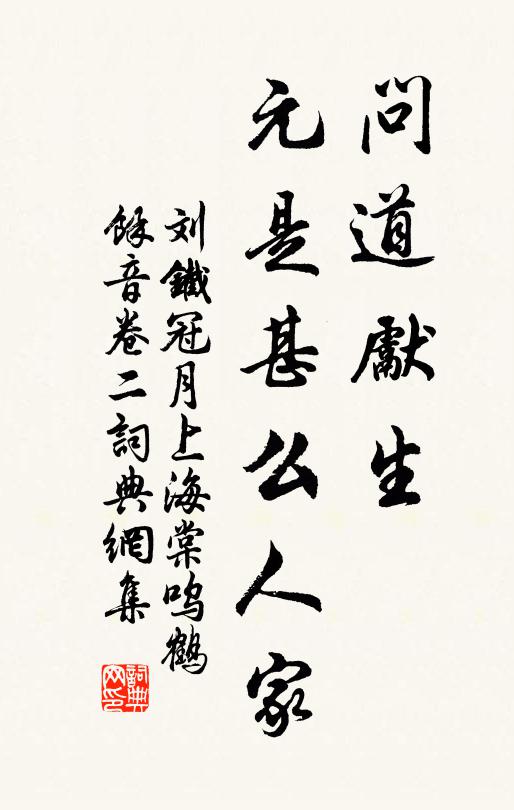 問道獻生
元是甚么人家
刘鐵冠月上海棠鸣鶴
餘音卷二詞典網集
詞典
网印